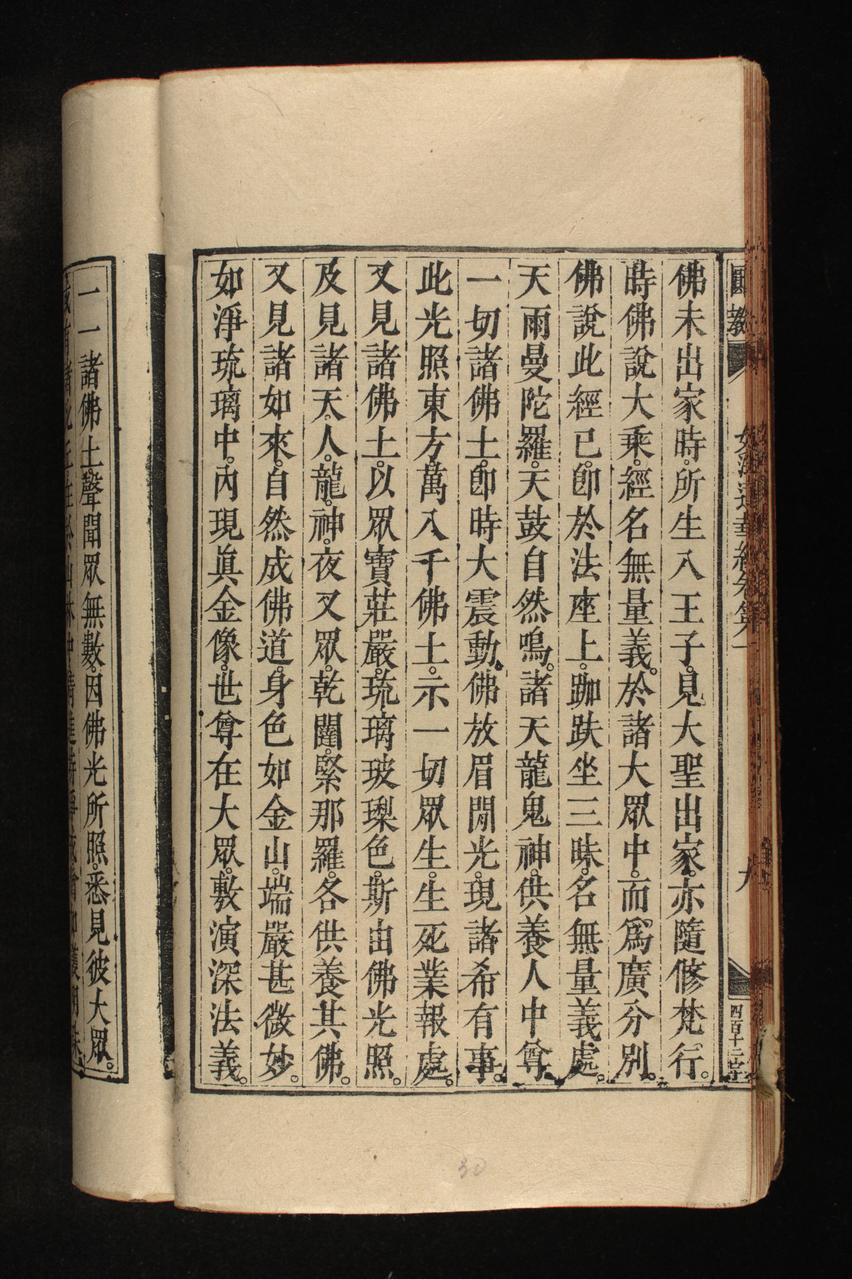 妙法蓮華經卷第一
佛未出家時。所生八王子。見大聖出家。亦隨修梵行。
時佛說大乘。經名無量義。於諸大眾中。而爲廣分別。
佛說此經已。卽於法座上。跏趺坐三昧。名無量義處。
天雨曼陀羅。天鼓自然鳴。諸天龍鬼神。供養人中尊。
一切諸佛土。卽時大震動。佛放眉閒光。現諸希有事。
此光照東方。萬八千佛土。示一切眾生。生死業報處。
又見諸佛土。以眾寶莊嚴。琉璃玻瓈色。斯由佛光照。
及見諸天人。龍神。夜叉眾。乾闥。緊那羅。各供養其佛。
又見諸如來。自然成佛道。身色如金山。端嚴甚微妙。
如淨琉璃中。內現眞金像。世尊在大眾。敷演深法義。
一一諸佛土。聲聞眾無數。因佛光所照。悉見彼大眾。